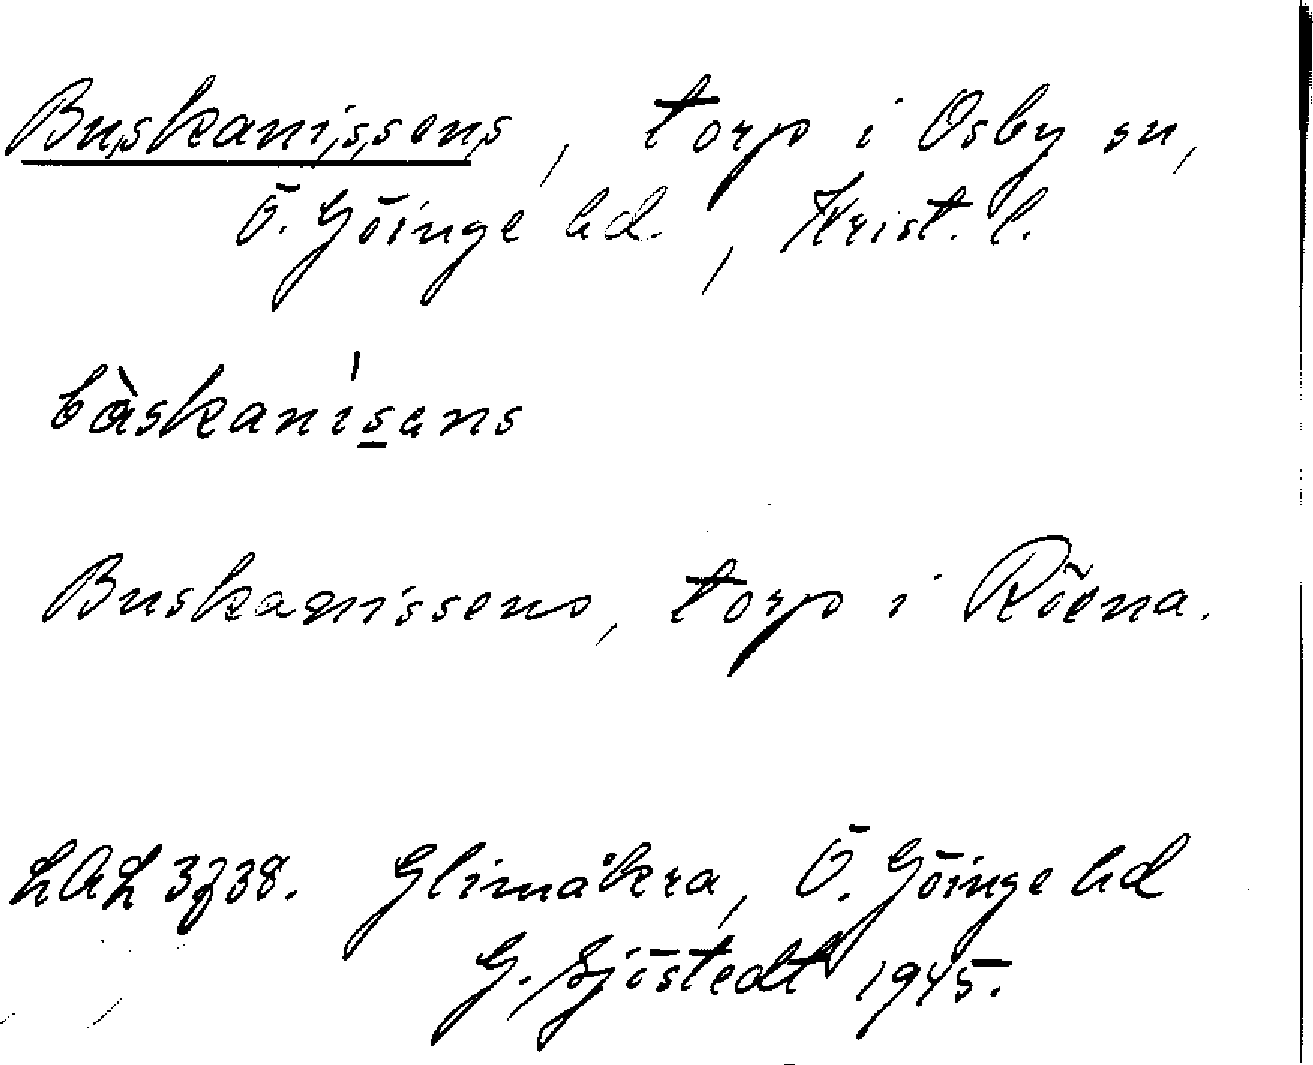 Buskanissens, torp i Osby sn,
Ö. Göinge hd., Krist. l.
bàskanísans
Buskanissens, torp i Röena.
LAL 3738. Glimåkra, Ö. Göinge hd
G. Sjöstedt 1945.